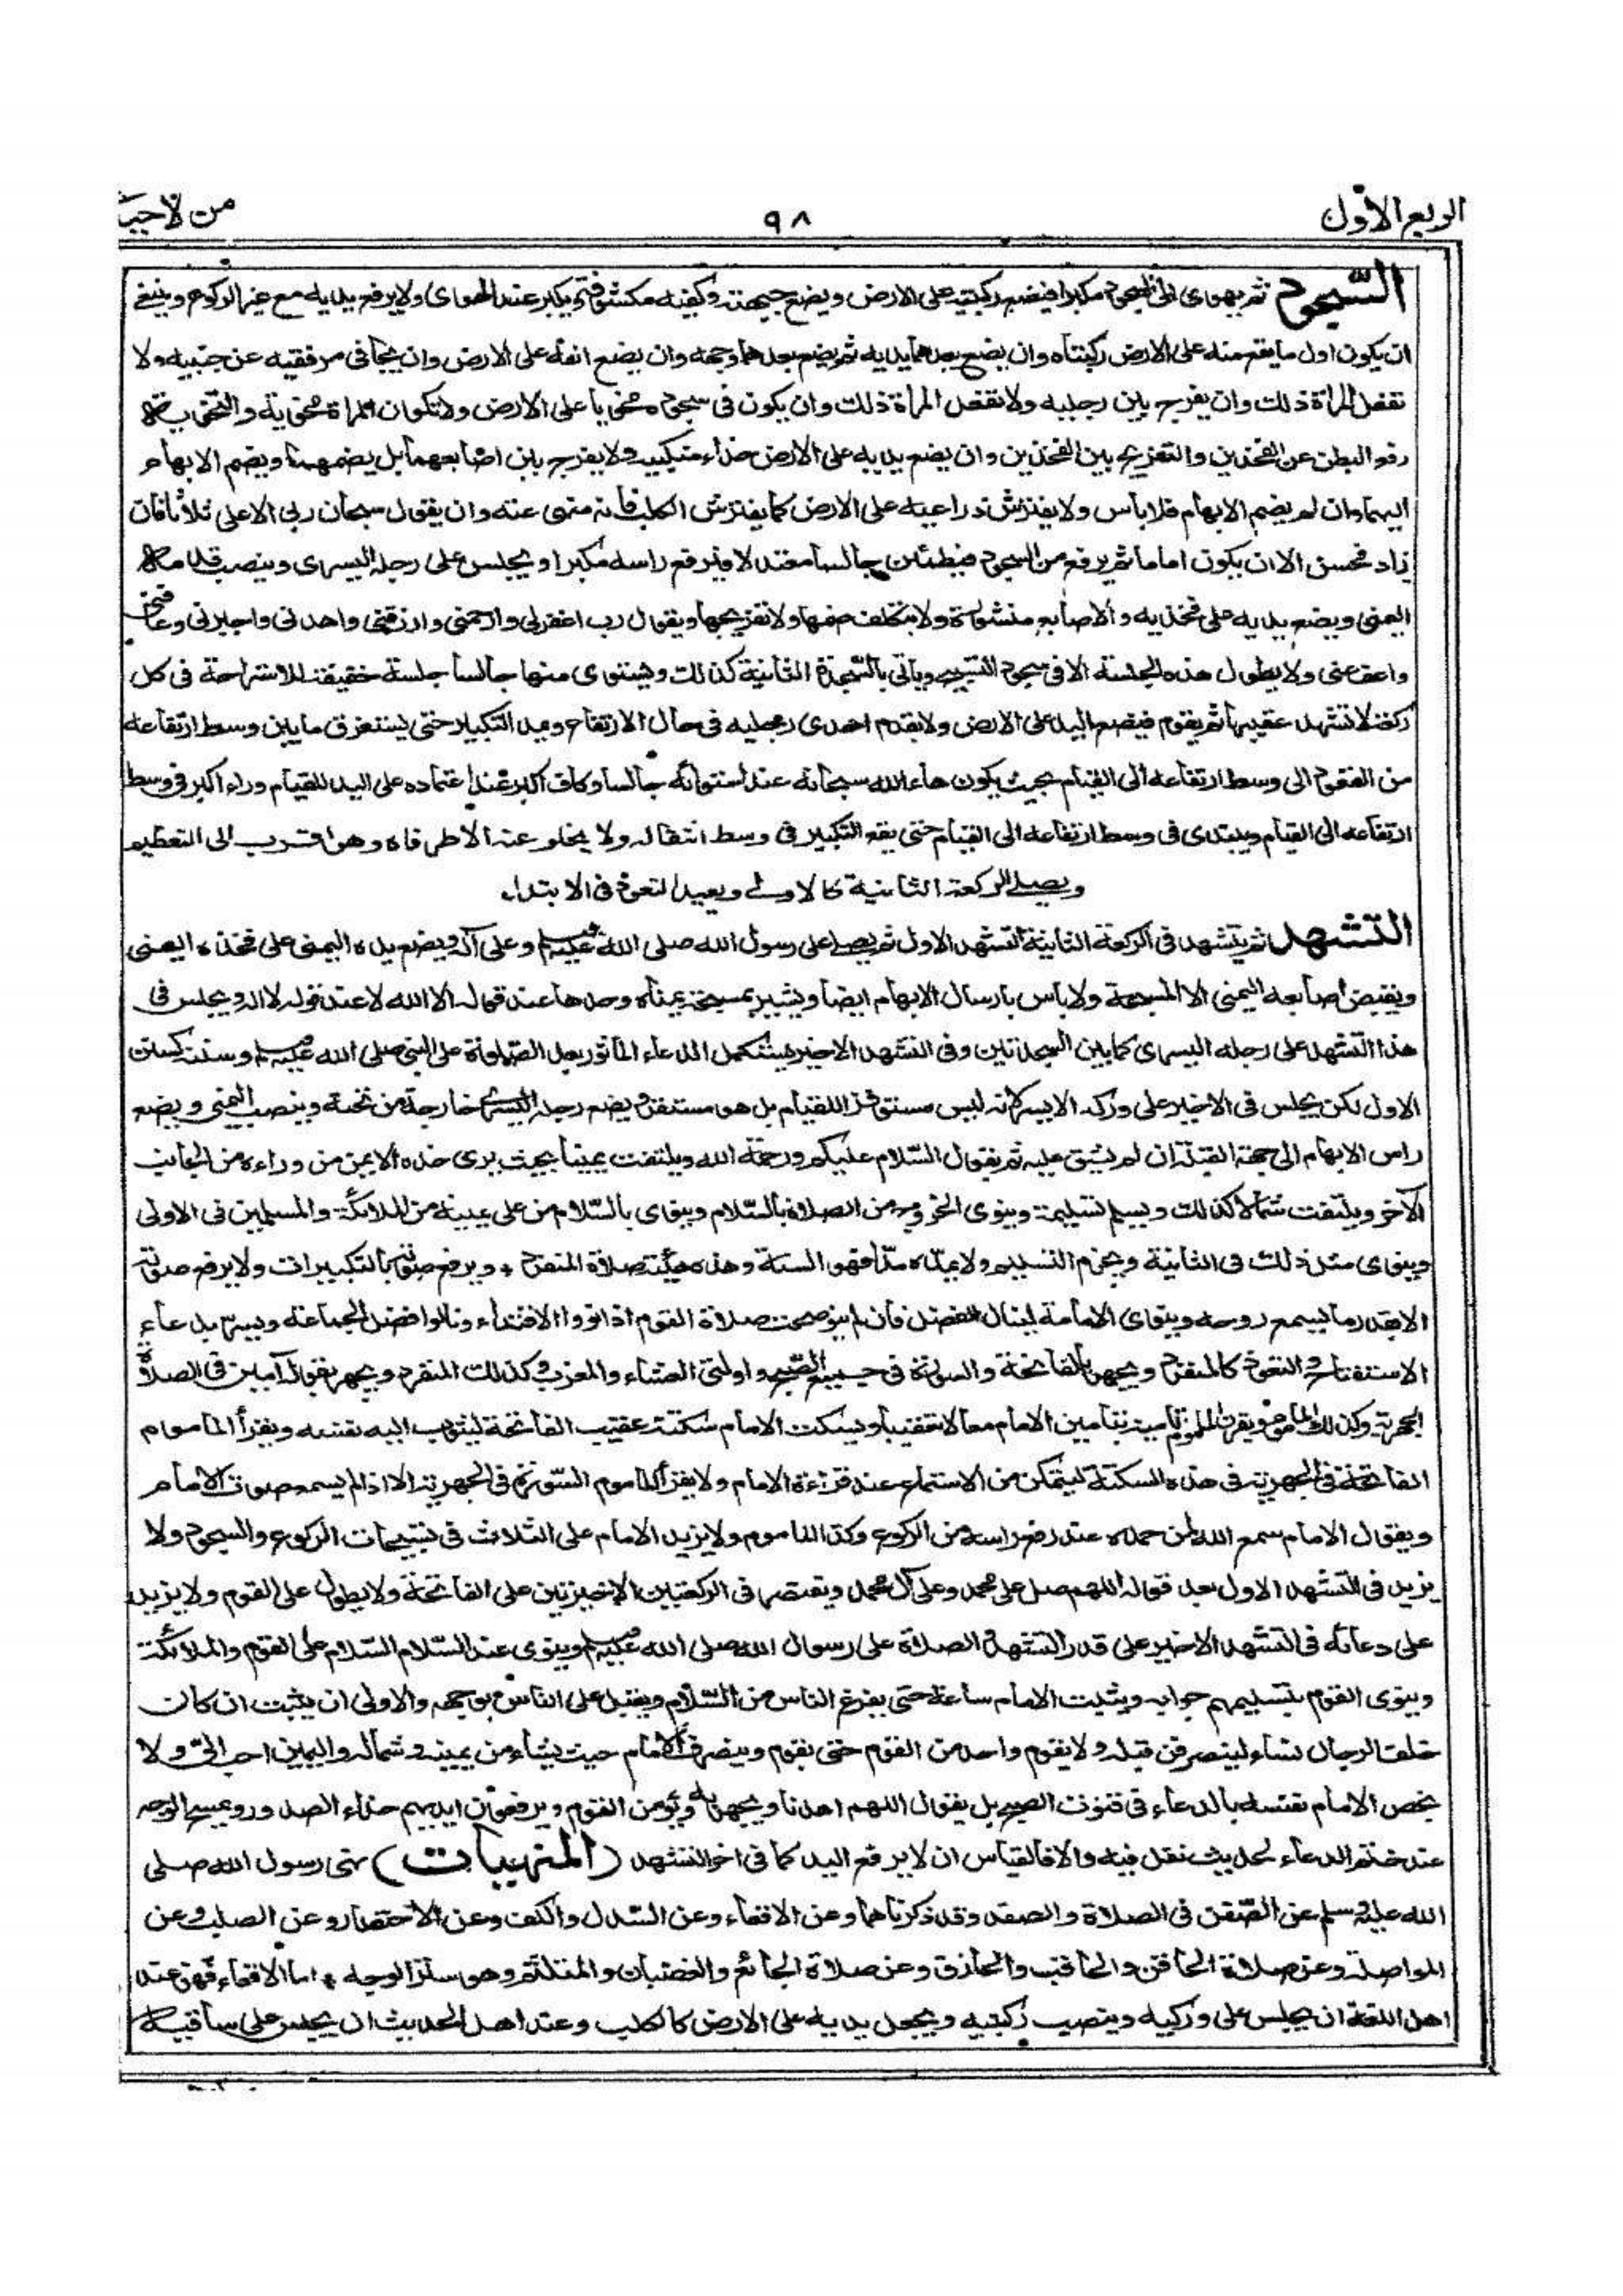 الربع الأول
٩٨
من الاحيا
السجود ثم يهوى الى السجود مكبرا فيضع ركبتيه على الارض ويضع جبهته وكفيه مكشوفة ويكبر عند الهوى ولا يرفع يديه مع غير الركوع وينبغي
ان يكون اول ما يقع منه على الارض ركبتاه وان يضع بعدهما يديه ثم يضع بعدهما وجهه وان يضع انفه على الارض وان يجافى مرفقيه عن جنبيه ولا
تفعل المراة ذلك وان يفرج بين رجليه ولا تفعل المراة ذلك وان يكون فى سجوده مخويا على الارض ولا تكون المراة مخوية والتخوية
رفع البطن عن الفخذين والتفريج بين الفخذين وان يضع يديه على الارض حذاء منكبيه ولا يفرج بين اصابعهما بل يضمهما ويضم الابهام
اليهما وان لم يضم الابهام فلا باس ولا يفترش ذراعيه على الارض كما يفترش الكلب فانه منهى عنه وان يقول سبحان ربى الاعلى ثلاثا فان
زاد فحسن الا ان يكون اماما ثم يرفع من السجود فيطمئن جالسا معتدلا فيرفع راسه مكبرا ويجلس على رجله اليسرى وينصب قدمه
اليمنى ويضع يديه على فخذيه والاصابع منشورة ولا يتكلف ضمها ولا تفريجها ويقول رب اغفرلى وارحمنى وارزقنى واهدنى واجبرنى وعافنى
واعف عنى ولا يطول هذه الجلسة الا فى سجود التسبيح وياتى بالسجدة الثانية كذلك ويستوى منها جالسا جلسة خفيفة للاستراحة فى كل
ركعة لا تشهد عقيبها ثم يقوم فيضع اليد على الارض ولا يقدم احدى رجليه فى حال الارتفاع ويمد التكبير حتى يستغرق ما بين وسط ارتفاعه
من القعود الى وسط ارتفاعه الى القيام بحيث يكون هاء الله سبحانه عند استوائه جالسا وكاف اكبر عند اعتماده على اليد للقيام وراء اكبر فى وسط
ارتفاعه الى القيام ويبتدى فى وسط ارتفاعه الى القيام حتى يقع التكبير فى وسط انتقاله ولا يخلو عنه الا طرفاه وهو اقرب الى التعظيم
ويصلى الركعة الثانية كالاولى ويعيد التعوذ فى الابتداء
التشهد ثم يتشهد فى الركعة الثانية التشهد الاول ثم يصلى على رسول الله صلى الله عليه وسلم وعلى آله ويضع يده اليمنى على فخذه اليمنى
ويقبض اصابعه اليمنى الا المسبحة ولا باس بارسال الابهام ايضا ويشير بمسبحة يمناه وحدها عند قوله الا الله لا عند قوله لا اله ويجلس فى
هذا التشهد على رجله اليسرى كما بين السجدتين وفى التشهد الاخير يستكمل الدعاء الماثور بعد الصلوة على النبى صلى الله عليه وسلم وسننه كسنن
الاول لكن يجلس فى الاخير على وركه الايسر لانه ليس مستوفزا للقيام بل هو مستقر ويضع رجله اليسرى خارجة من تحته وينصب اليمنى ويضع
راس الابهام الى جهة القبلة ان لم يشق عليه ثم يقول السلام عليكم ورحمة الله ويلتفت يمينا بحيث يرى خده الايمن من وراءه من الجانب
الآخر ويلتفت شمالا كذلك ويسلم تسليمة وينوى الخروج من الصلاة بالسلام وينوى بالسلام من على يمينه من الملائكة والمسلمين فى الاولى
وينوى مثل ذلك فى الثانية ويجزم التسليم ولا يمده مدا فهو السنة وهذه هيئة صلاة المنفرد ويرفع صوته بالتكبيرات ولا يرفع صوته
الا بقدر ما يسمع روحه وينوى الامامة لينال الفضل فان لم ينو صحت صلاة القوم اذا نووا الاقتداء ونالوا فضل الجماعة ويسر بدعاء
الاستفتاح والتعوذ كالمنفرد ويجهر بالفاتحة والسورة فى جميع الصبح واولتى العشاء والمغرب وكذلك المنفرد ويجهر بقول آمين فى الصلاة
الجهرية وكذلك الماموم ويقرن الماموم تامينه بتامين الامام معا لا تعقيبا ويسكت الامام سكتة عقيب الفاتحة ليثوب اليه نفسه ويقرأ الماموم
الفاتحة فى الجهرية فى هذه السكتة ليتمكن من الاستماع عند قراءة الامام ولا يقرأ الماموم السورة فى الجهرية الا اذا لم يسمع صوت الامام
ويقول الامام سمع الله لمن حمده عند رفع راسه من الركوع وكذا الماموم ولا يزيد الامام على الثلاث فى تسبيحات الركوع والسجود ولا
يزيد فى التشهد الاول بعد قوله اللهم صل على محمد وعلى آل محمد ويقتصر فى الركعتين الاخيرتين على الفاتحة ولا يطول على القوم ولا يزيد
على دعائه فى التشهد الاخير على قدر التشهد والصلاة على رسول الله صلى الله عليه وسلم وينوى عند السلام السلام على القوم والملائكة
وينوى القوم بتسليمهم جوابه ويثبت الامام ساعة حتى يفرغ الناس من السلام ويقبل على الناس بوجهه والاولى ان يثبت ان كان
خلف الرجال نساء لينصرفن قبله ولا يقوم واحد من القوم حتى يقوم وينصرف الامام حيث يشاء من يمينه وشماله واليمين احب الى ولا
يخص الامام نفسه بالدعاء فى قنوت الصبح بل يقول اللهم اهدنا ويجهر به ويؤمن القوم ويرفعون ايديهم حذاء الصدور ويمسح الوجه
عند ختم الدعاء لحديث نقل فيه والا فالقياس ان لا يرفع اليد كما فى اخر التشهد (المنهيات) نهى رسول الله صلى
الله عليه وسلم عن الصفن فى الصلاة والصفد وقد ذكرناهما وعن الاقعاء وعن السدل والكف وعن الاختصار وعن الصلب وعن
المواصلة وعن صلاة الحاقن والحاقب والحازق وعن صلاة الجائع والغضبان والمتلثم وهو ستر الوجه * اما الاقعاء فهو عند
اهل اللغة ان يجلس على وركيه وينصب ركبتيه ويجعل يديه على الارض كالكلب وعند اهل الحديث ان يجلس على ساقيه